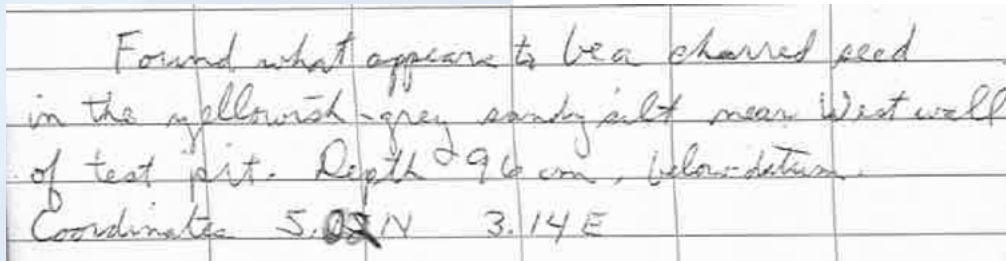 Found what appears to be a charred seed
in the yellowish-grey sandy silt near West wall
of test pit. Depth 296 cm, below-datum.
Coordinates 5.02N 3.14E